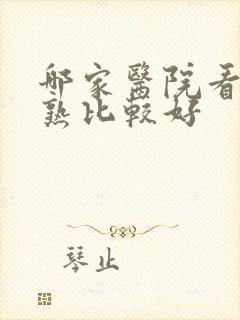 那家醫院看
熟比較好
琴止